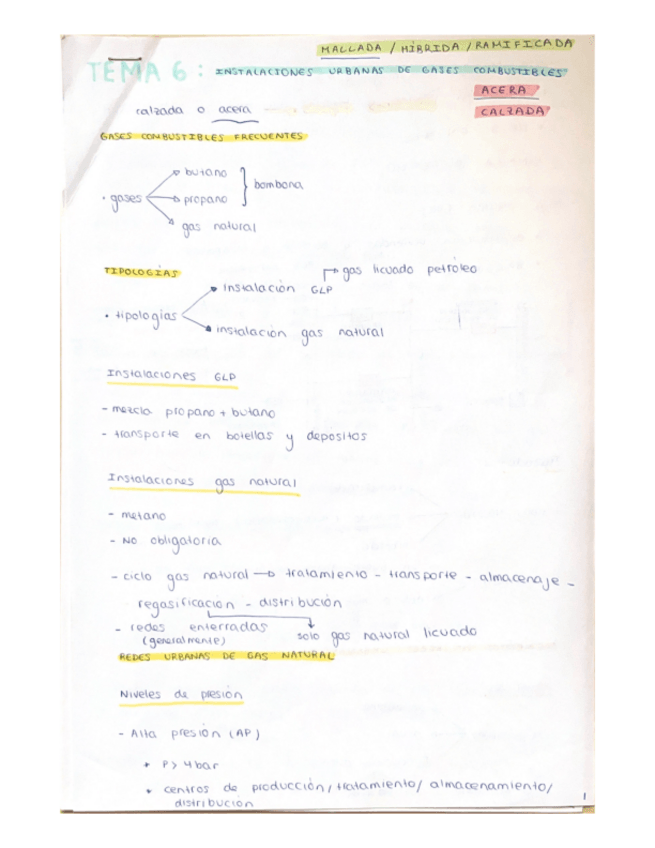 MALLADA / HÍBRIDA / RAMIFICADA
TEMA 6: INSTALACIONES URBANAS DE GASES COMBUSTIBLES
ACERA
calzada o acera
CALZADA
GASES COMBUSTIBLES FRECUENTES
butano
bombona
· gases
propano
gas natural
TIPOLOGÍAS
gas licuado petróleo
instalación GLP
· tipologías
instalación gas natural
Instalaciones GLP
- mezcla propano + butano
- transporte en botellas y depositos
Instalaciones gas natural
- metano
- NO obligatoria
- ciclo gas natural → tratamiento - transporte - almacenaje -
regasificación - distribución
- redes enterradas
(generalmente)
solo gas natural licuado
REDES URBANAS DE GAS NATURAL
Niveles de presión
- Alta presión (AP)
+ P > 4bar
• centros de producción/tratamiento/almacenamiento/
distribución
1